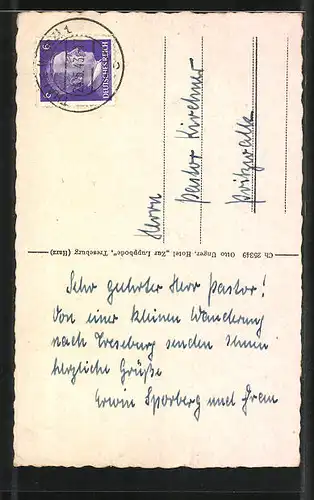 6 DEUTSCHES REICH 6
Herrn
Pastor Kirchner
Pritzwalk
Ch 25349 Otto Unger, Hotel „Zur Luppbode“, Treseburg (Harz)
Sehr geehrter Herr Pastor!
Von einer kleinen Wanderung
nach Treseburg senden Ihnen
herzliche Grüße
Erwin Sporberg und Frau